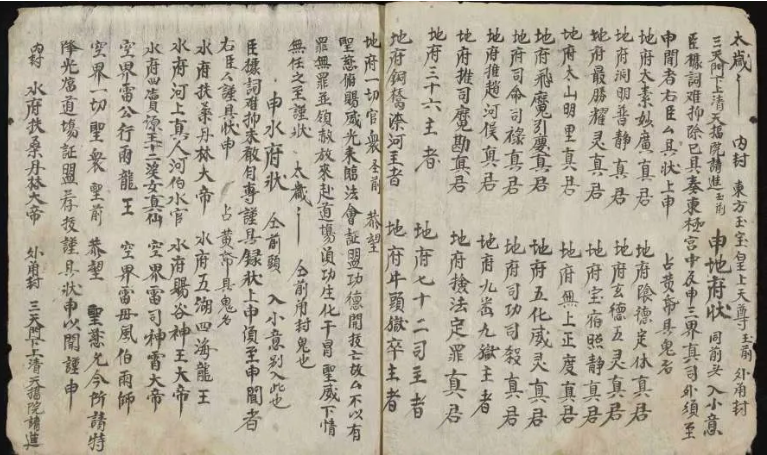 太歲 內封 東方玉宝皇上天尊 玉前 外甪封
三天門下上清天樞院請進 玉前 申地府狀 同前头入小意
臣據詞难抑除已具奏東極宮中及申三界真司外須至
申聞者右臣厶具狀上申 占黃帝具鬼名
地府太素妙廣真君 地府隂德定休真君
地府洞明普静真君 地府玄德五灵真君
地府最勝耀灵真君 地府宝宿照静真君
地府太山明里真君 地府無上正度真君
地府飛魔引慶真君 地府五化威灵真君
地府司命司祿真君 地府司功司殺真君
地府推趙河侯真君 地府九壘九獄主者
地府推司魔勘真君 地府撿法定罪真君
地府三十六主者 地府七十二司主者
地府銅橋柰河主者 地府牛頭獄卒主者
地府一切官衆 圣前 恭望
聖慈俯賜威光來臨法會証盟功德開拔亡故厶不以有
罪無罪並領赦放來赴道塲湏功生化干冒聖威下情
無任之至謹狀 太歲 仝前甪封鬼也
申水府狀 仝前頭 入小意别入此也
臣據詞难抑未敢自專謹具録狀上申湏至申聞者
右臣厶謹具狀申 占黄帝具鬼名
水府扶桑丹林大帝 水府五湖四海龍王
水府河上真人河伯水官 水府賜谷神王大帝
水府四瀆源王十二溪女真仙 空界雷司神霄大帝
空界雷公行雨龍王 空界雷母風伯雨師
空界一切聖衆 聖前 恭望 聖慈允今所請特
降光當道塲証盟荐拔謹具狀申以聞謹申
內封 水府扶桑丹林大帝 外甪封 三天門下上清天樞院請進